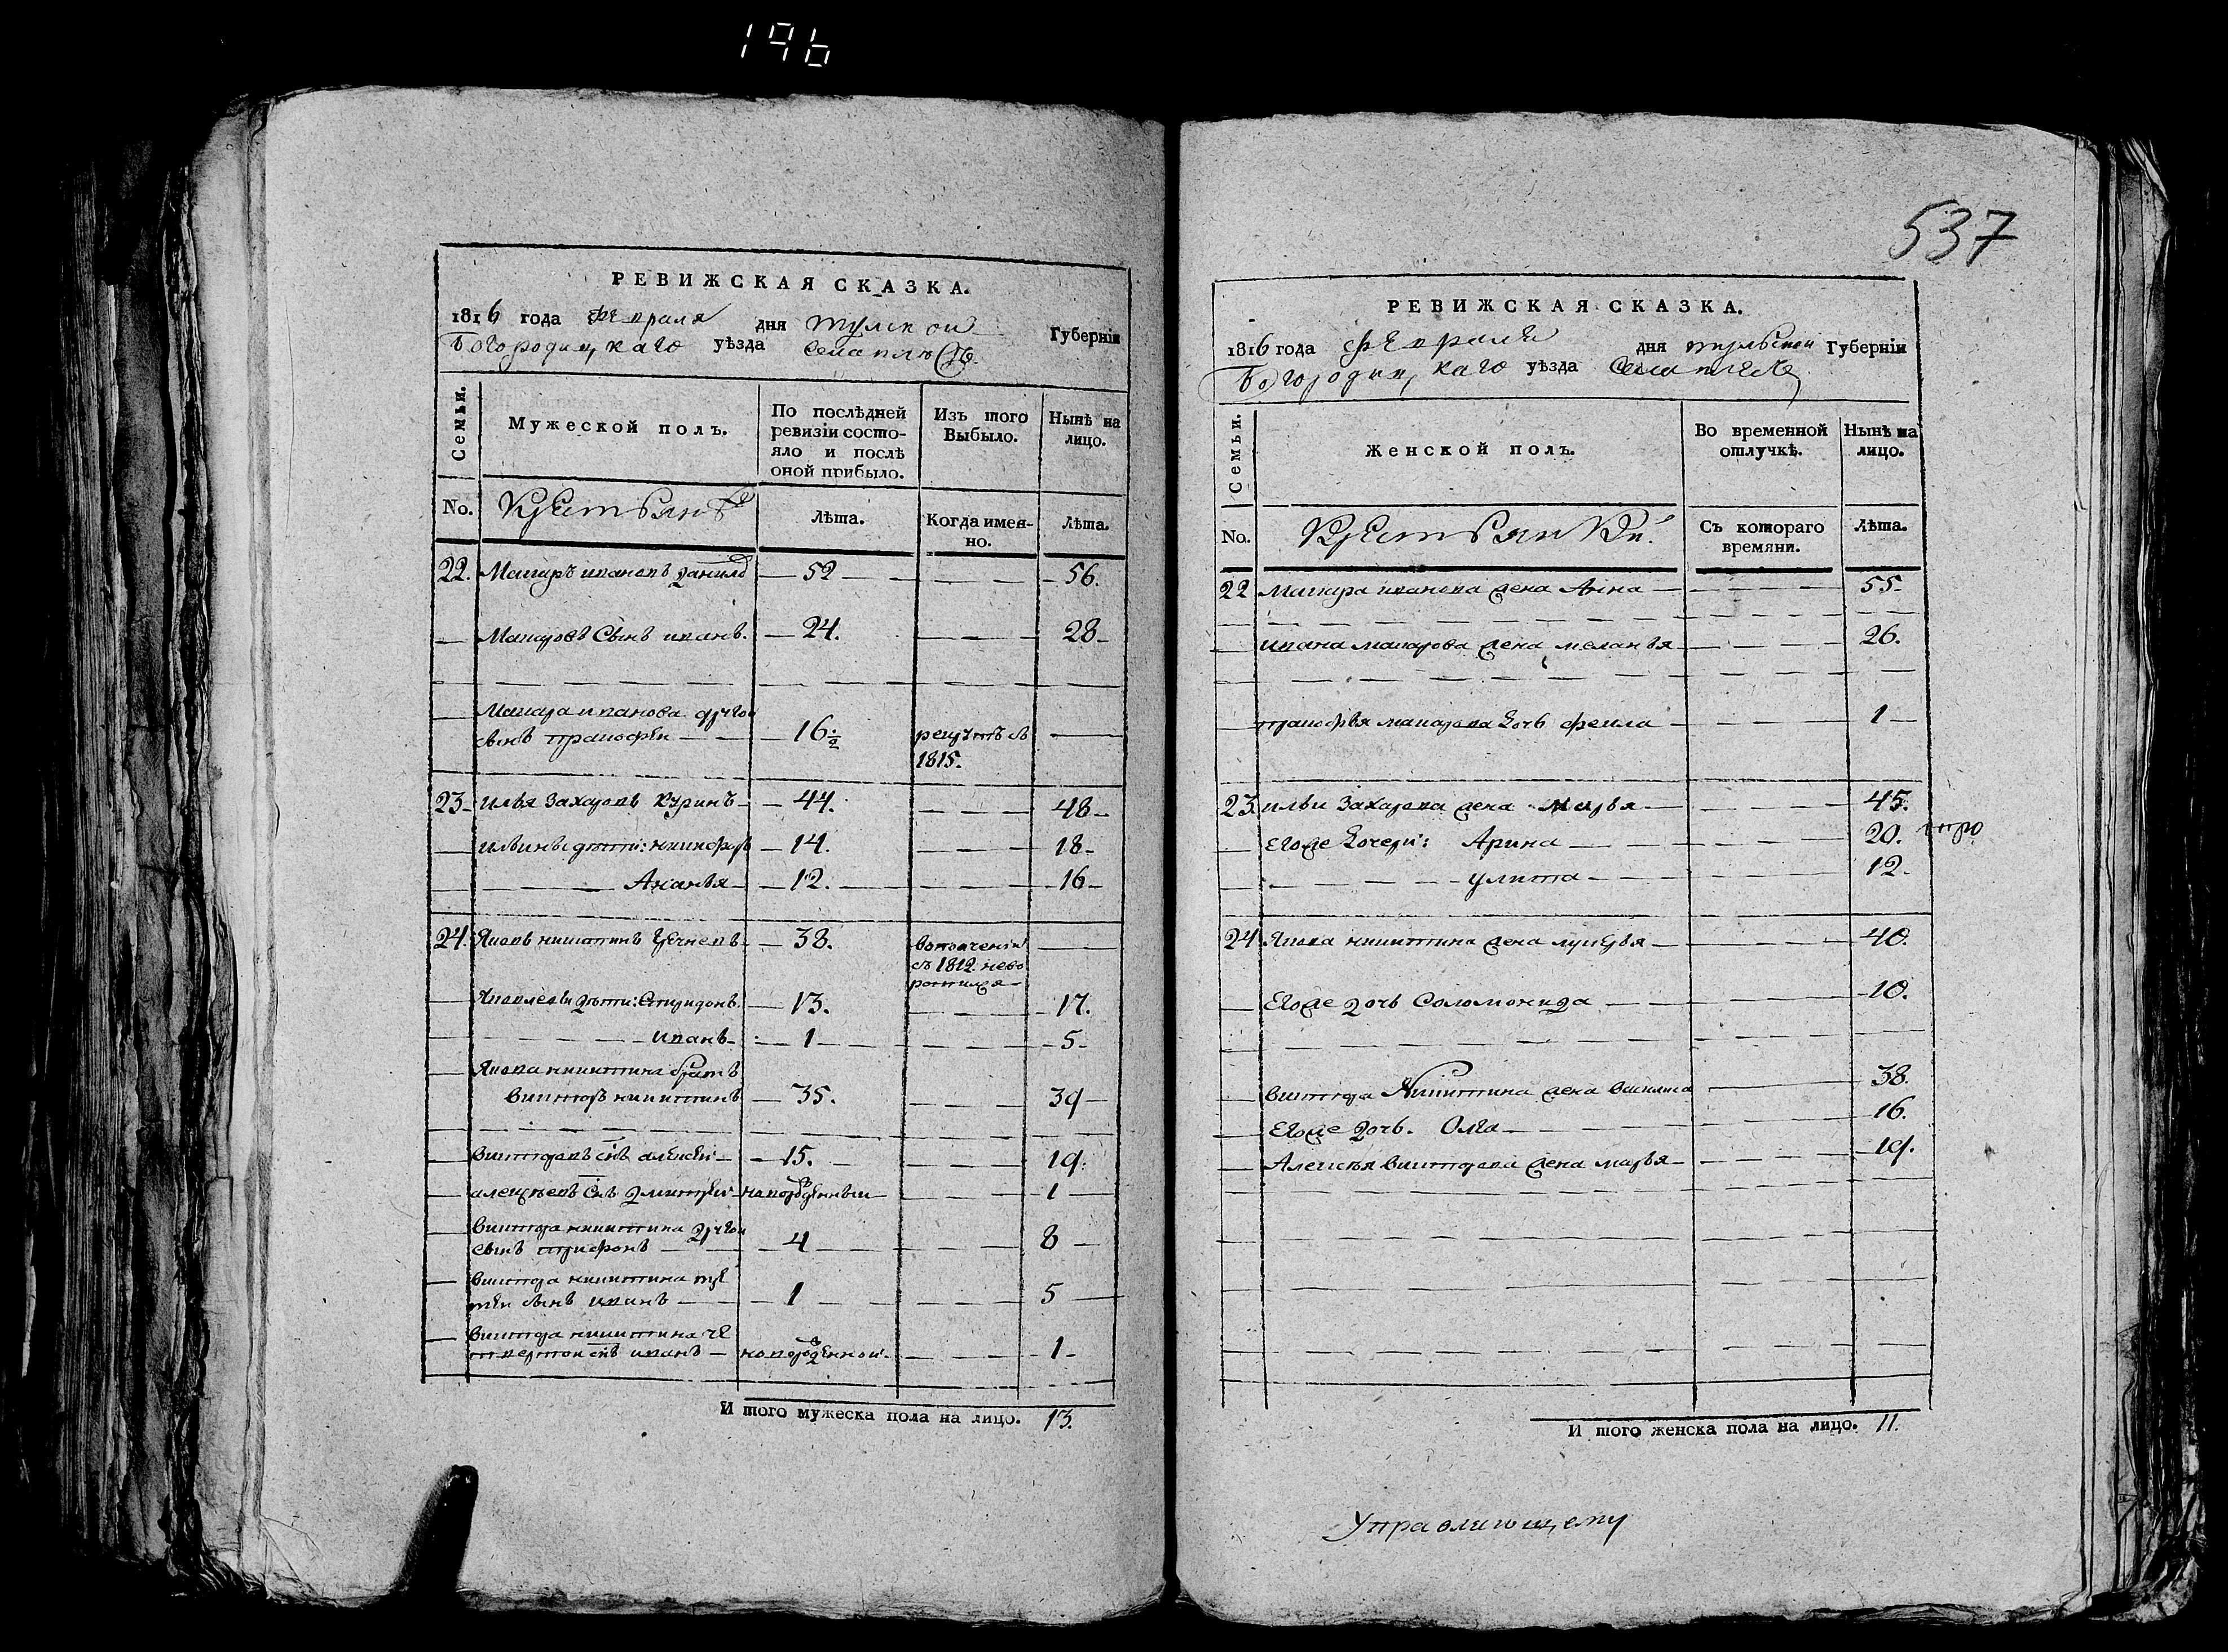 196
РЕВИЖСКАЯ СКАЗКА.
1816 года февраля дня тулской Губерніи
Богородицкаго уѣзда села
Семьи.
Мужеской полъ.
По послѣдней ревизіи состояло и послѣ оной прибыло.
Изъ того Выбыло.
Нынѣ на лицо.
No. Крестьянѣ Лѣта. Когда именно. Лѣта.
22. Макаръ ивановъ 52 56.
Макаровъ сынъ иванъ. 24. 28
Макара иванова другой
сынъ прокофей 16 1/2 рекрутъ въ
1815.
23 илья Захаровъ 44. 48
ильины дѣти: никифоръ 14. 18
Ананья 12. 16
24. Яковъ никитинъ 38. вополченіи
въ 1812. нево
ротился
Яковлевы дѣти: Спиридонъ. 13. 17.
иванъ 1 5
Якова никитина братъ
викторъ никитинъ 35. 39
викторовъ снъ алексей 15. 19.
алексѣевъ снъ дмитрей новорожденный 1
виктора никитина другои
сынъ трифонъ 4 8
виктора никитина тре
теи сынъ иванъ 1 5
виктора никитина че
твертои снъ иванъ новорожденной 1
И того мужеска пола на лицо. 13.
537
РЕВИЖСКАЯ СКАЗКА.
1816 года февраля дня тульской Губерніи
Богородицкаго уѣзда села
Семьи.
Женской полъ.
Во временной отлучкѣ.
Нынѣ на лицо.
No. Крестьянки. Съ котораго времяни. Лѣта.
22 Макара иванова жена Анна 55
ивана макарова жена меланья 26.
прокофья макарова дочь фекла 1
23 ильи Захарова жена марья 45.
Егоже дочери: Арина 20.
улита 12
24 Якова никитина жена лукерья 40.
Егоже дочь Соломонида 10.
виктора Никитина жена василиса 38.
Егоже дочь. Олга 16.
Алексѣя викторова жена марья 19.
И того женска пола на лицо. 11.
Управляющему